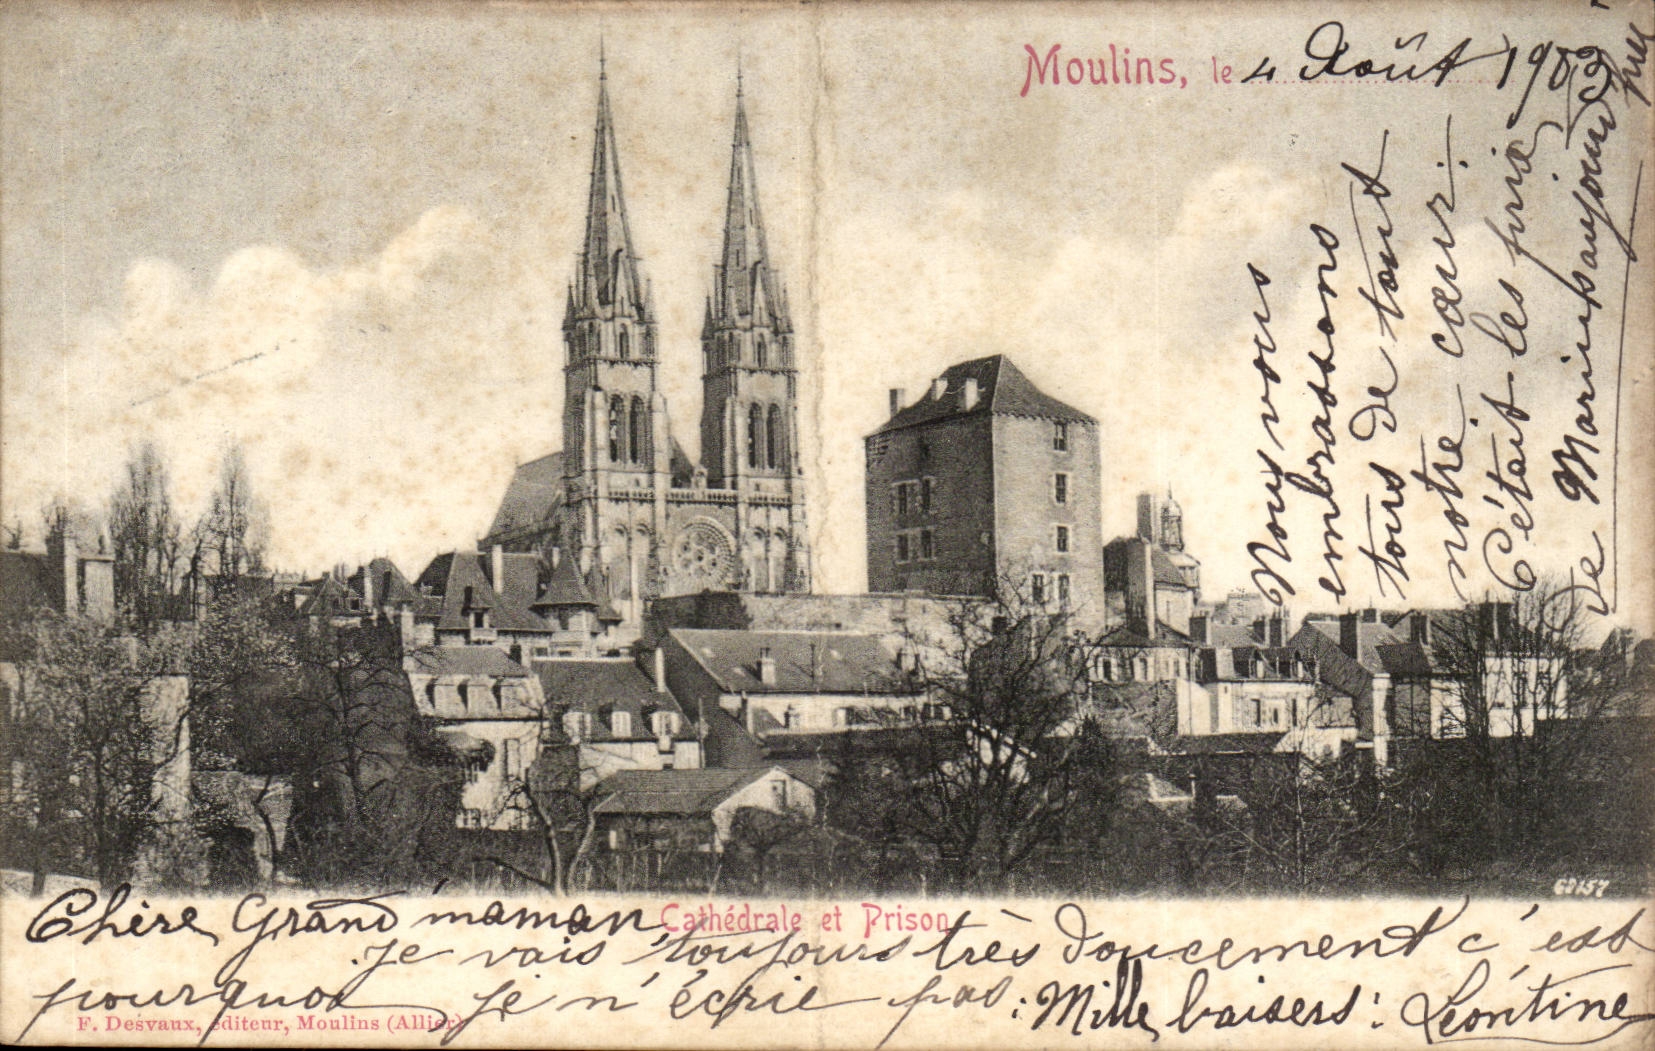 Moulins, le 4 Août 1903
Nous vous
embrassons
tous de tout
notre cœur :
C'était les prix
de Marius aujourd'hui
Cathédrale et Prison
GD157
Chère Grand'maman
Je vais toujours très doucement c'est
pourquoi je n'écrie pas : Mille baisers : Léontine
F. Desvaux, éditeur, Moulins (Allier)